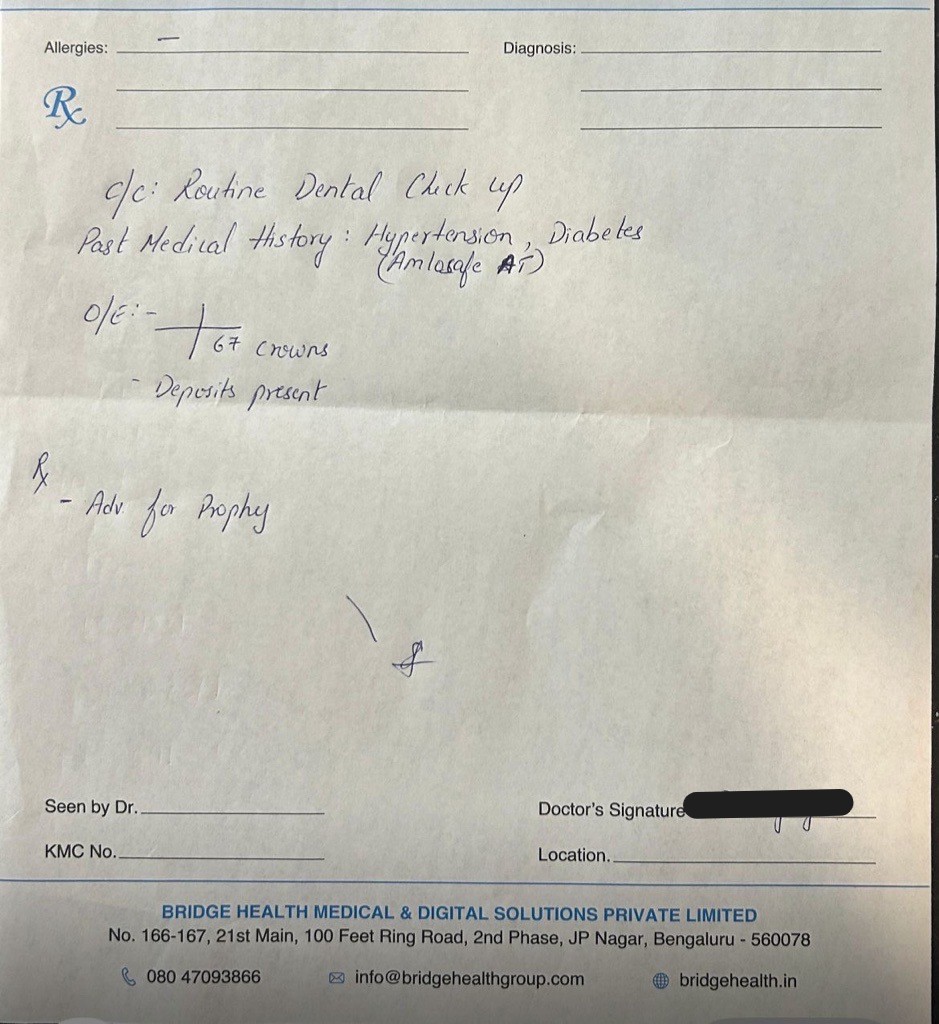 Allergies: — Diagnosis:
Rx
c/c: Routine Dental Check up
Past Medical History : Hypertension, Diabetes
(Amlosafe AT)
O/E:-
67 crowns
- Deposits present
Rx
- Adv. for Prophy
Seen by Dr. Doctor's Signature
KMC No. Location.
BRIDGE HEALTH MEDICAL & DIGITAL SOLUTIONS PRIVATE LIMITED
No. 166-167, 21st Main, 100 Feet Ring Road, 2nd Phase, JP Nagar, Bengaluru - 560078
080 47093866 info@bridgehealthgroup.com bridgehealth.in